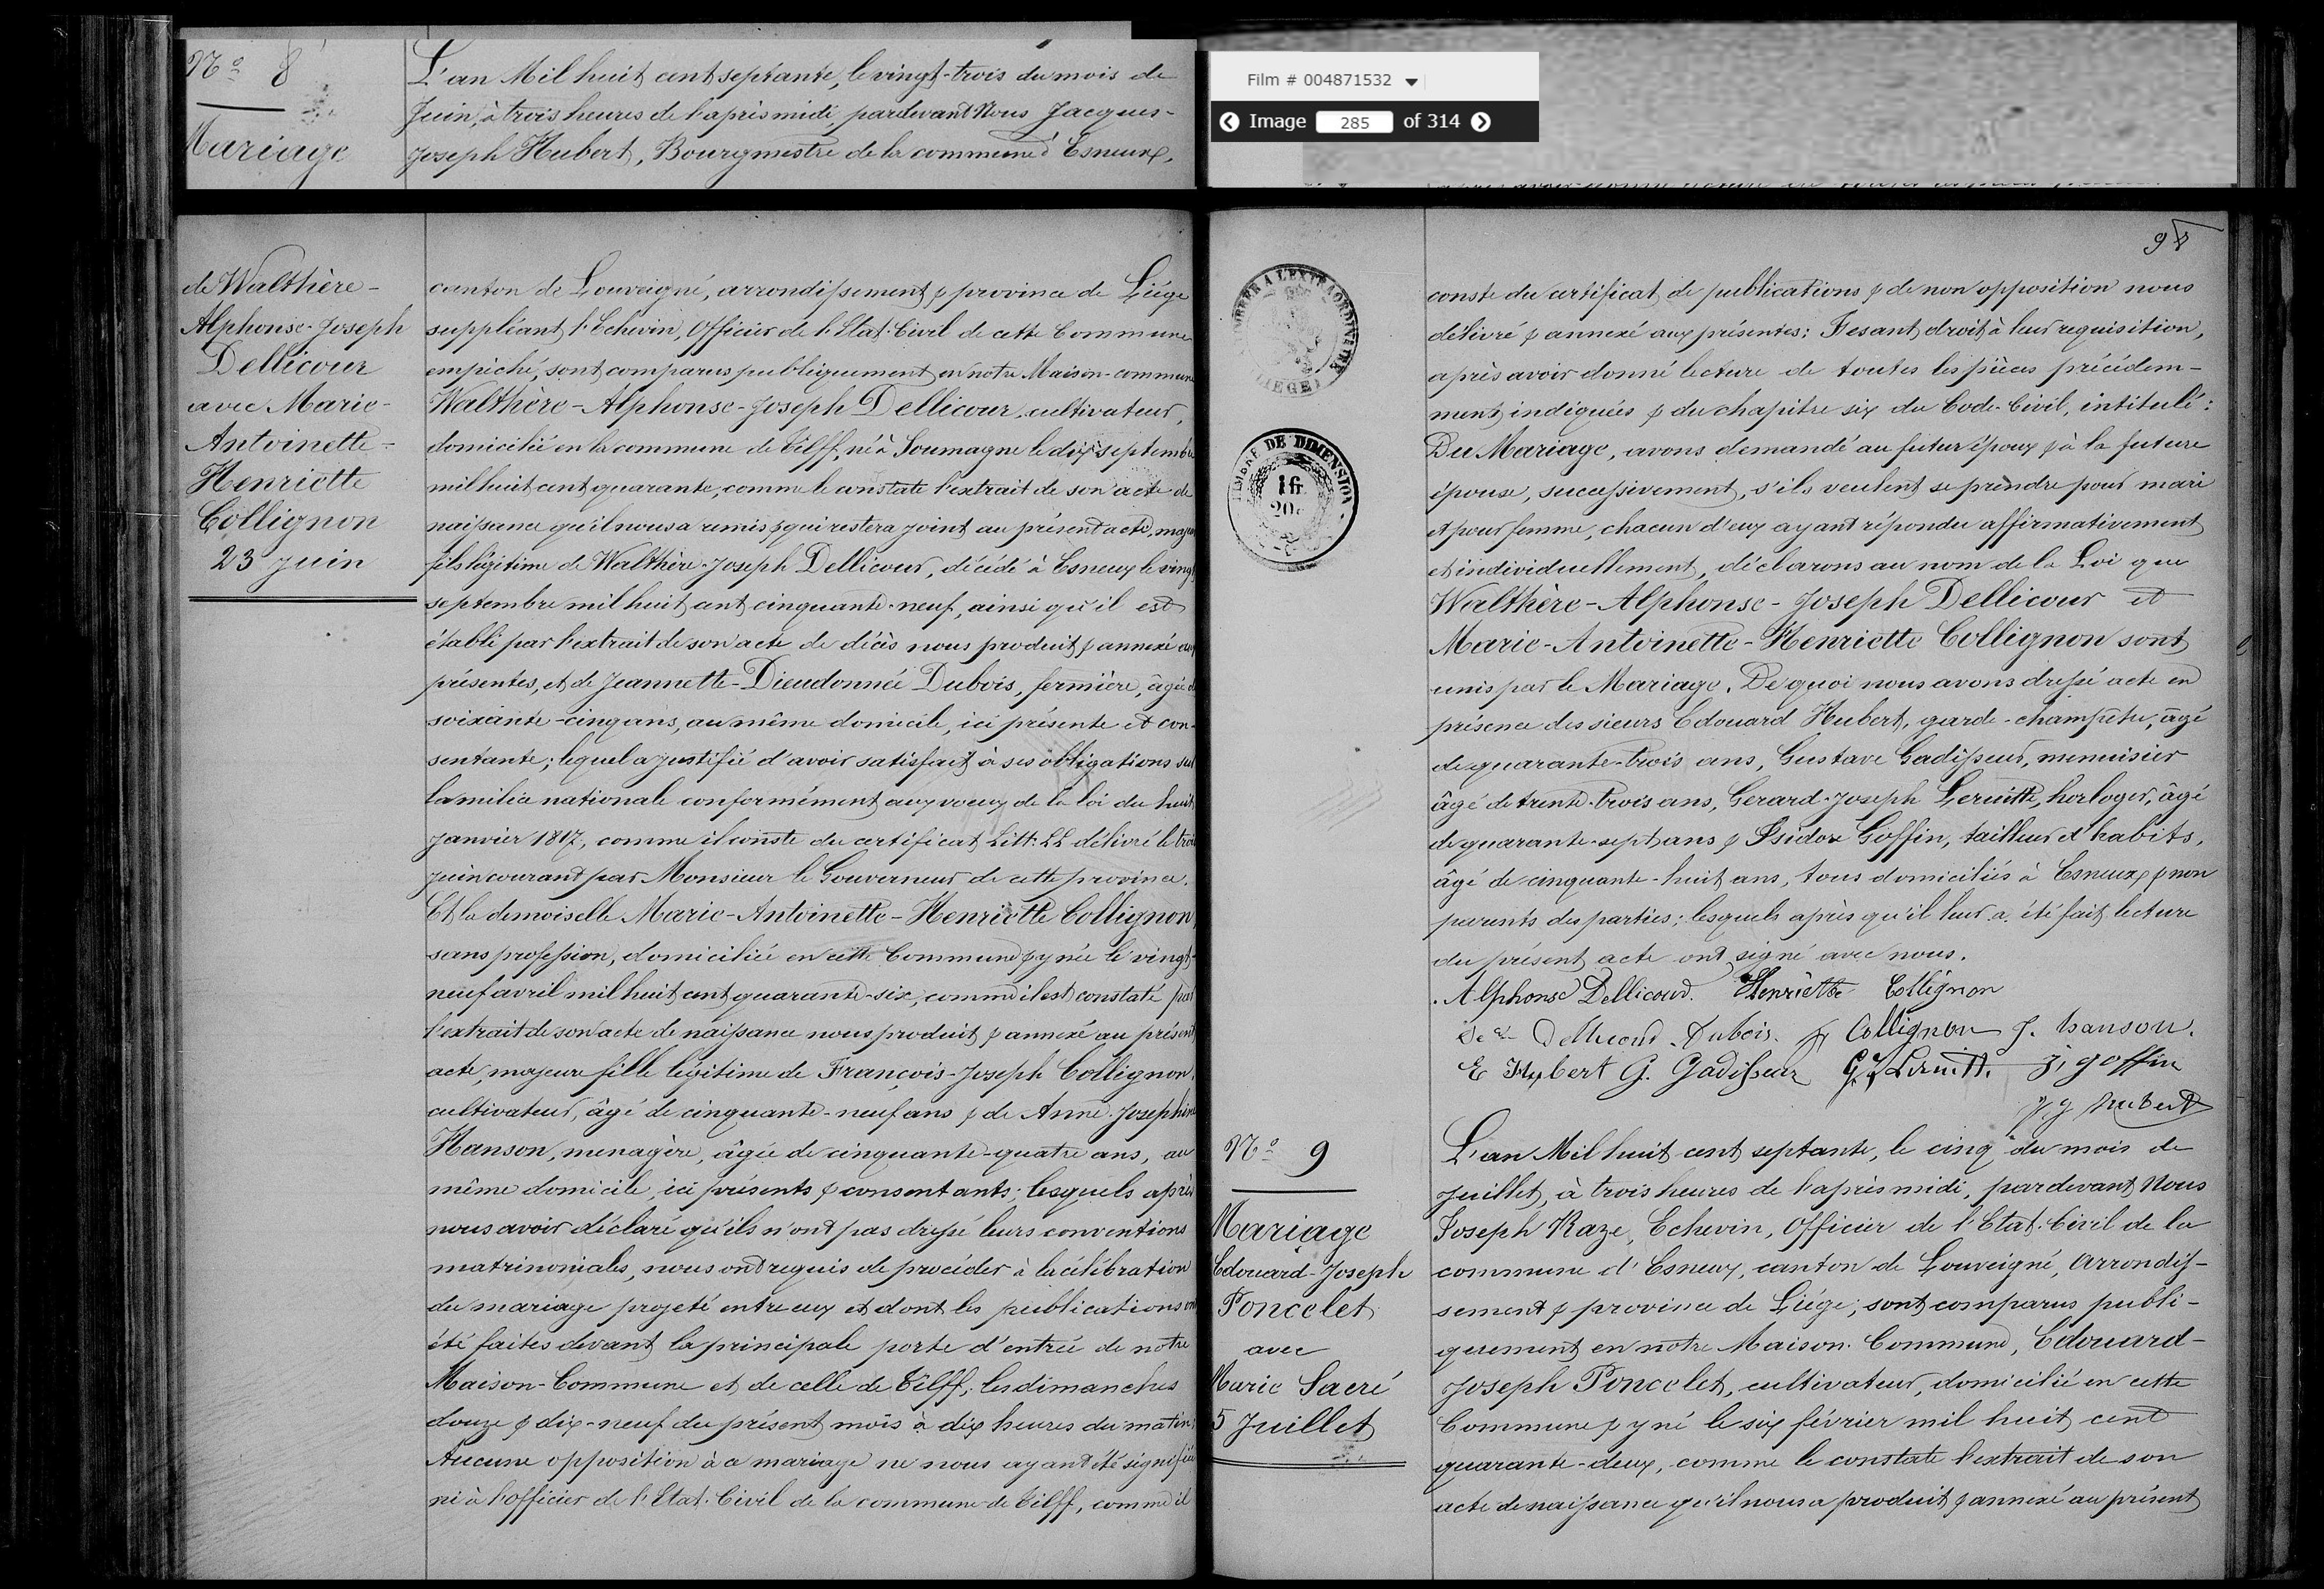 Nº 8
Mariage
L'an Mil huit cent septante, le vingt-trois du mois de
Juin, à trois heures de l'après midi, pardevant Nous Jacques-
Joseph Hubert, Bourgmestre de la commune d'Esneux,
Film # 004871532
Image 285 of 314
de Walthère-
Alphonse-Joseph
Dellicour
avec Marie-
Antoinette-
Henriette
Collignon
23 Juin
canton de Louveigné, arrondissement & province de Liége
suppléant l'Echevin, Officier de l'Etat-Civil de cette Commune
empêché, sont comparus publiquement en notre Maison-commune
Walthère-Alphonse-Joseph Dellicour, cultivateur,
domicilié en la commune de Tilff, né à Soumagne le dix septembre
mil huit cent quarante, comme le constate l'extrait de son acte de
naissance qu'il nous a remis & qui restera joint au présent acte, majeur
fils légitime de Walthère-Joseph Dellicour, décédé à Esneux le vingt
septembre mil huit cent cinquante-neuf, ainsi qu'il est
établi par l'extrait de son acte de décès nous produit & annexé aux
présentes, et de Jeannette-Dieudonnée Dubois, fermière, âgée de
soixante-cinq ans, au même domicile, ici présente et con-
sentante; lequel a justifié d'avoir satisfait à ses obligations sur
la milice nationale conformément aux voeux de la loi du huit
Janvier 1817, comme il conste du certificat Litt: LL délivré le trois
juin courant par Monsieur le Gouverneur de cette province.
Et la demoiselle Marie-Antoinette-Henriette Collignon,
sans profession, domiciliée en cette Commune & y née le vingt-
neuf avril mil huit cent quarante-six, comme il est constaté par
l'extrait de son acte de naissance nous produit & annexé au présent
acte, majeure fille légitime de François-Joseph Collignon,
cultivateur, âgé de cinquante-neuf ans & de Anne-Josephine
Hanson, menagère, âgée de cinquante-quatre ans, au
même domicile, ici présents & consentants; lesquels après
nous avoir déclaré qu'ils n'ont pas dressé leurs conventions
matrimoniales, nous ont requis de procéder à la célébration
du mariage projeté entre eux et dont les publications ont
été faites devant la principale porte d'entrée de notre
Maison-Commune et de celle de Tilff, les dimanches
douze & dix-neuf du présent mois à dix heures du matin;
Aucune opposition à ce mariage ne nous ayant été signifiée
ni à l'officier de l'Etat-Civil de la commune de Tilff, comme il
98
TIMBRE A L'EXTRAORDINAIRE
LIEGE
TIMBRE DE DIMENSION
1f.
20c
conste du certificat de publications & de non opposition nous
délivré & annexé aux présentes: Fesant droit à leur requisition,
après avoir donné lecture de toutes les pièces précédem-
ment indiquées & du chapitre six du Code-Civil, intitulé:
Du Mariage, avons demandé au futur époux & à la future
épouse, successivement, s'ils veulent se prendre pour mari
et pour femme, chacun d'eux ayant répondu affirmativement
et individuellement, déclarons au nom de la Loi que
Walthère-Alphonse-Joseph Dellicour et
Marie-Antoinette-Henriette Collignon sont
unis par le Mariage. De quoi nous avons dressé acte en
présence des sieurs Edouard Hubert, garde-champêtre, âgé
de quarante-trois ans, Gustave Gadisseur, menuisier
âgé de trente-trois ans, Gerard-Joseph Leruitte, horloger, âgé
de quarante-sept ans & Isidore Goffin, tailleur d'habits,
âgé de cinquante-huit ans, tous domiciliés à Esneux & non
parents des parties; lesquels après qu'il leur a été fait lecture
du présent acte ont signé avec nous.
Alphonse Dellicour. Henriette Collignon
Dellicour Dubois. Collignon J. hanson.
E Hubert G. Gadisseur G. J. Leruitte. j, goffin
J J Hubert
Nº 9
Mariage
Edouard-Joseph
Poncelet
avec
Marie Sacré
5 Juillet
L'an Mil huit cent septante, le cinq du mois de
Juillet, à trois heures de l'après midi, pardevant Nous
Joseph Raze, Echevin, Officier de l'Etat-Civil de la
commune d'Esneux, canton de Louveigné, Arrondis-
sement & province de Liége; sont comparus publi-
quement en notre Maison-Commune, Edouard-
Joseph Poncelet, cultivateur, domicilié en cette
Commune & y né le six février mil huit cent
quarante-deux, comme le constate l'extrait de son
acte de naissance qu'il nous a produit & annexé au présent